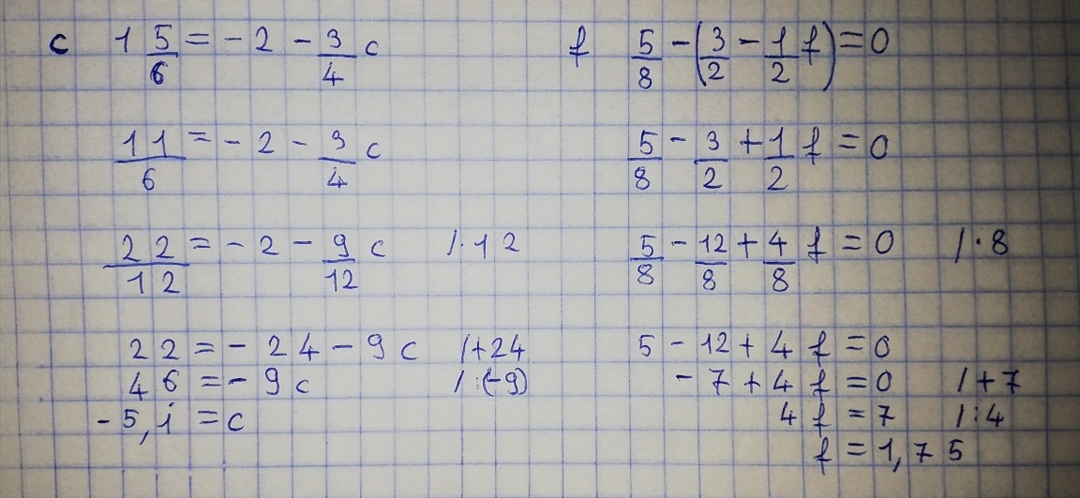 c 1 5/6 = - 2 - 3/4 c
11/6 = - 2 - 3/4 c
22/12 = - 2 - 9/12 c /·12
22 = - 24 - 9c /+24
46 = - 9c /:(-9)
- 5,1 = c
f 5/8 - (3/2 - 1/2 f) = 0
5/8 - 3/2 + 1/2 f = 0
5/8 - 12/8 + 4/8 f = 0 /·8
5 - 12 + 4 f = 0
- 7 + 4 f = 0 /+7
4 f = 7 /:4
f = 1,75